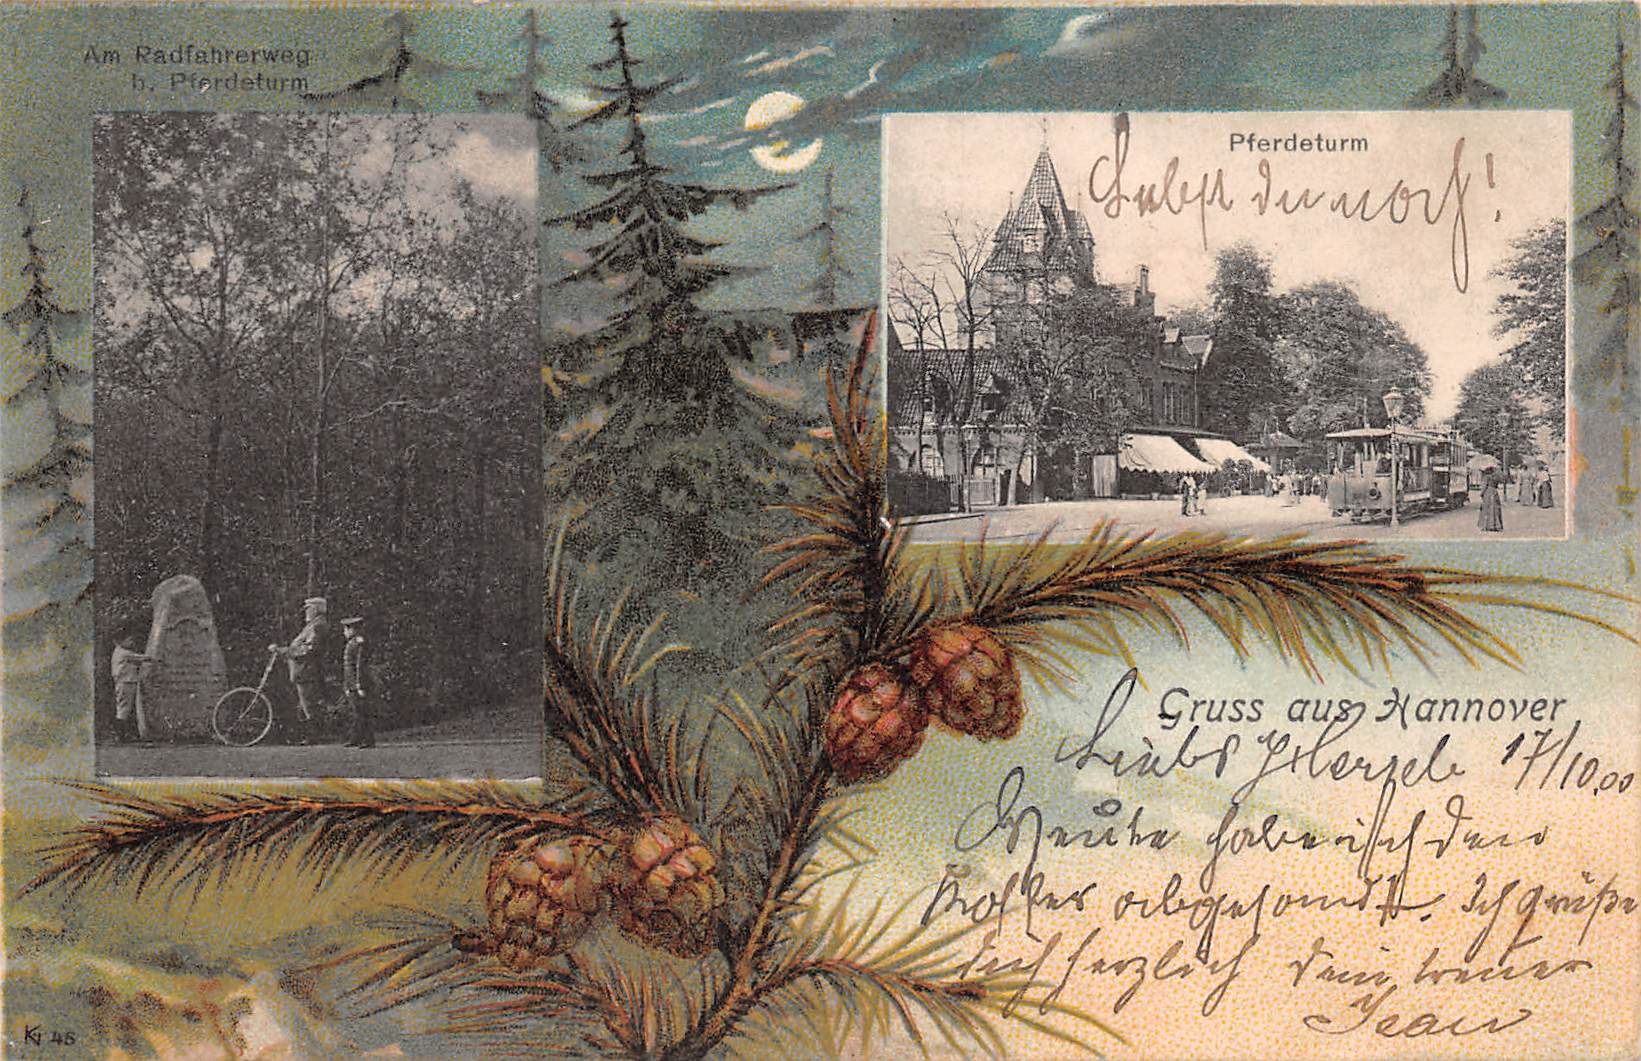 Am Radfahrerweg
b. Pferdeturm
Pferdeturm
Lebst du noch!
Gruss aus Hannover
Liebes 17/10.00
Heute habe ich den
Koffer abgesandt. Ich grüße
dich herzlich dein treuer
Jean
KJ 46